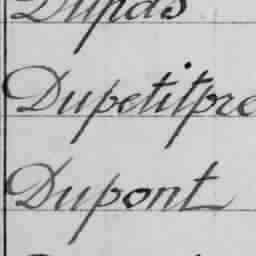 Dupas
Dupetitpre
Dupont